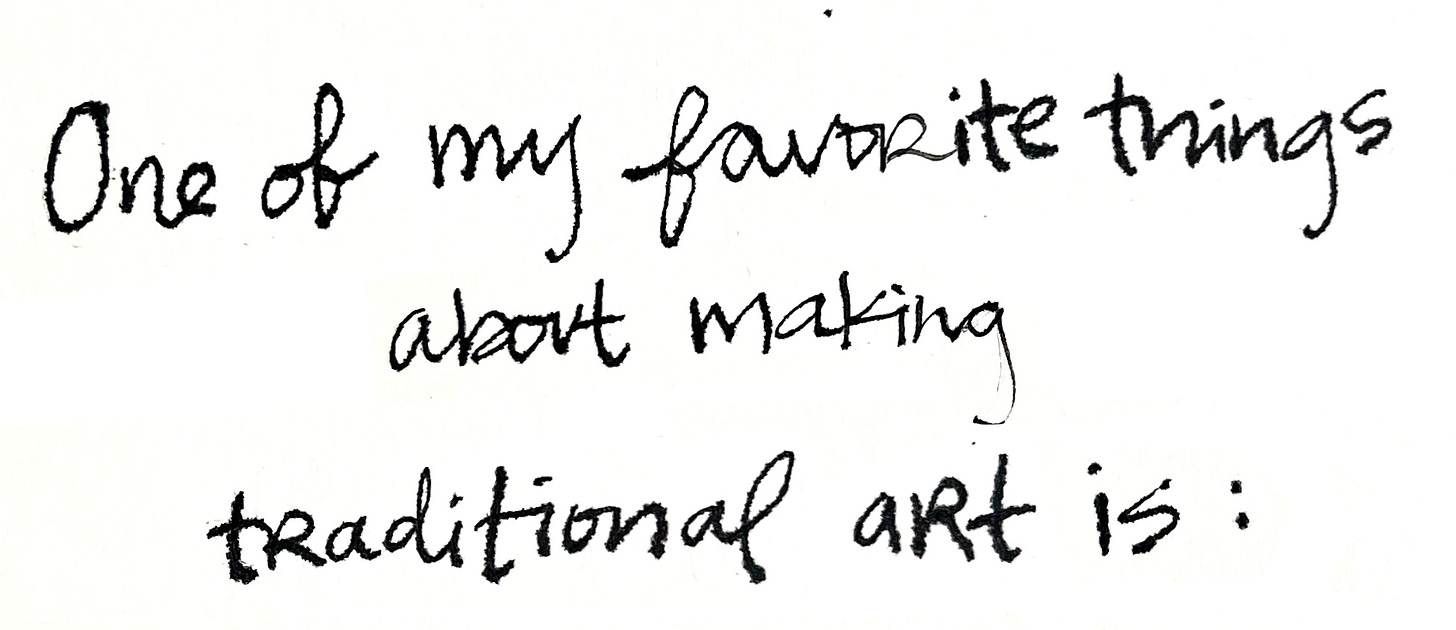 One of my favorite things
about making
traditional art is: